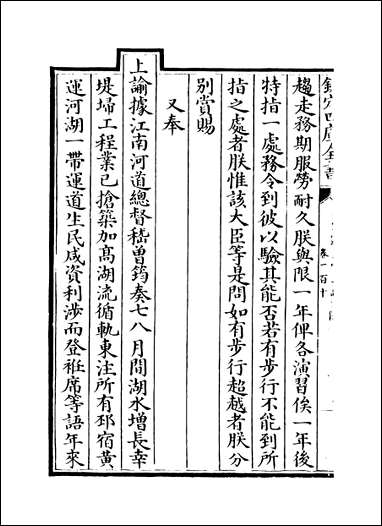 趨走務期服勞耐久朕與限一年俾各演習俟一年後
特指一處務令到彼以驗其能否若有步行不能到所
指之處者朕惟該大臣等是問如有步行超越者朕分
別賞賜
又奉
上諭據江南河道總督嵇曾筠奏七八月間湖水增長幸
堤埽工程業已搶築加高湖流循軌東注所有邳宿黃
運河湖一帶運道生民咸資利涉而登袵席等語年來